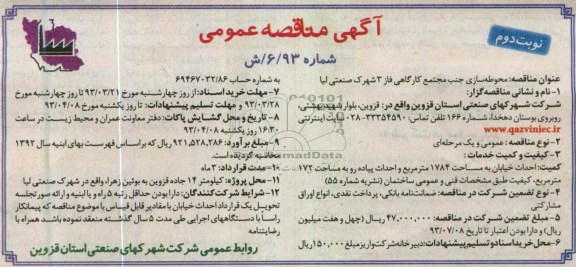 آگهی مناقصه عمومی
شماره ۶/۹۳/ش
نوبت دوم
عنوان مناقصه: محوطه‌سازی جنب مجتمع کارگاهی فاز ۳ شهرک صنعتی لیا
۱- نام و نشانی مناقصه‌گزار:
شرکت شهرکهای صنعتی استان قزوین واقع در: قزوین، بلوار شهید بهشتی،
روبروی بوستان دهخدا، شماره ۱۶۶ تلفن تماس: ۳۳۳۵۴۵۹۰-۰۲۸ سایت اینترنتی
www.qazviniec.ir
۲- نوع مناقصه: عمومی و یک مرحله‌ای
۳- کیفیت و کمیت خدمات:
کمیت: احداث خیابان به مساحت ۱۷۸۴ مترمربع و احداث پیاده رو به مساحت ۱۷۲
مترمربع، کیفیت طبق مشخصات فنی و عمومی ساختمان (نشریه شماره ۵۵)
۴- نوع تضمین شرکت در مناقصه: ضمانت‌نامه بانکی، پرداخت نقدی، انواع اوراق
مشارکتی
۵- مبلغ تضمین شرکت در مناقصه: ۴۷,۰۰۰,۰۰۰ ریال (چهل و هفت میلیون
ریال) و دارا بودن اعتبار تا تاریخ ۹۳/۰۷/۰۸
۶- محل خرید اسناد و تسلیم پیشنهادات: دبیرخانه شرکت واریز مبلغ ۱۵۰,۰۰۰ ریال
به شماره حساب ۶۹۴۶۷۰۳۲/۸۶
۷- مهلت خرید اسناد: از روز چهارشنبه مورخ ۹۳/۰۳/۲۱ تا روز چهارشنبه مورخ
۹۳/۰۳/۲۸ و مهلت تسلیم پیشنهادات: تا روز یکشنبه مورخ ۹۳/۰۴/۰۸
۸- تاریخ و محل گشایش پاکات: دفتر معاونت عمران و محیط زیست در ساعت
۱۶:۳۰ روز یکشنبه ۹۳/۰۴/۰۸
۹- مبلغ برآورد: ۹۲۱,۵۲۸,۲۸۶ ریال که براساس فهرست بهای ابنیه سال ۱۳۹۲
محاسبه گردیده است.
۱۰- مدت قرارداد: ۳ ماه
۱۱- محل پروژه: کیلومتر ۱۴ جاده قزوین به بوئین زهرا، واقع در شهرک لیا
۱۲- شرایط شرکت کنندگان: دارا بودن حداقل رتبه ۵ راه و یا ابنیه و ارائه صورتجلسه
تحویل یک قرارداد احداث خیابان با مقادیر قابل قیاس با موضوع مناقصه که پیمانکار
راسا با دستگاههای اجرایی طی مدت ۵ سال گذشته منعقد نموده باشد همراه با
رضایتنامه
روابط عمومی شرکت شهرکهای صنعتی استان قزوین